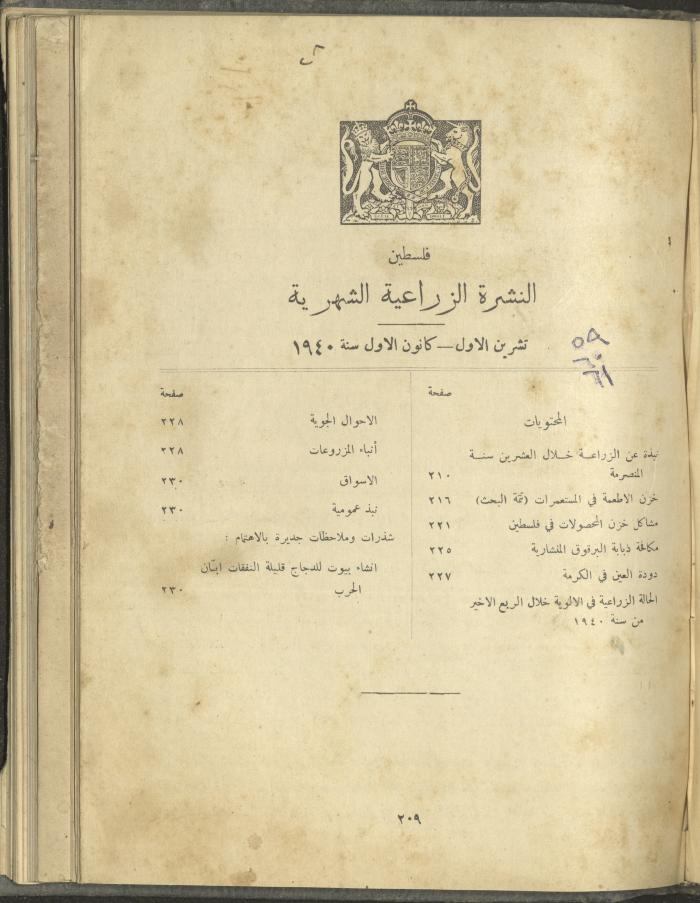 فلسطين
النشرة الزراعية الشهرية
تشرين الاول — كانون الاول سنة ١٩٤٠
صفحة
المحتويات
نبذة عن الزراعـة خـلال العشرين سنـة
المنصرمة ٢١٠
خزن الاطعمة في المستعمرات (تتمة البحث) ٢١٦
مشاكل خزن المحصولات في فلسطين ٢٢١
مكافحة ذبابة البرقوق المنشارية ٢٢٥
دودة العين في الكرمة ٢٢٧
الحالة الزراعية في الالوية خلال الربع الاخير
من سنة ١٩٤٠
صفحة
الاحوال الجوية ٢٢٨
أنباء المزروعات ٢٢٨
الاسواق ٢٣٠
نبذ عمومية ٢٣٠
شذرات وملاحظات جديرة بالاهتمام :
انشاء بيوت للدجاج قليلة النفقات ابـّان
الحرب ٢٣٠
٢٠٩